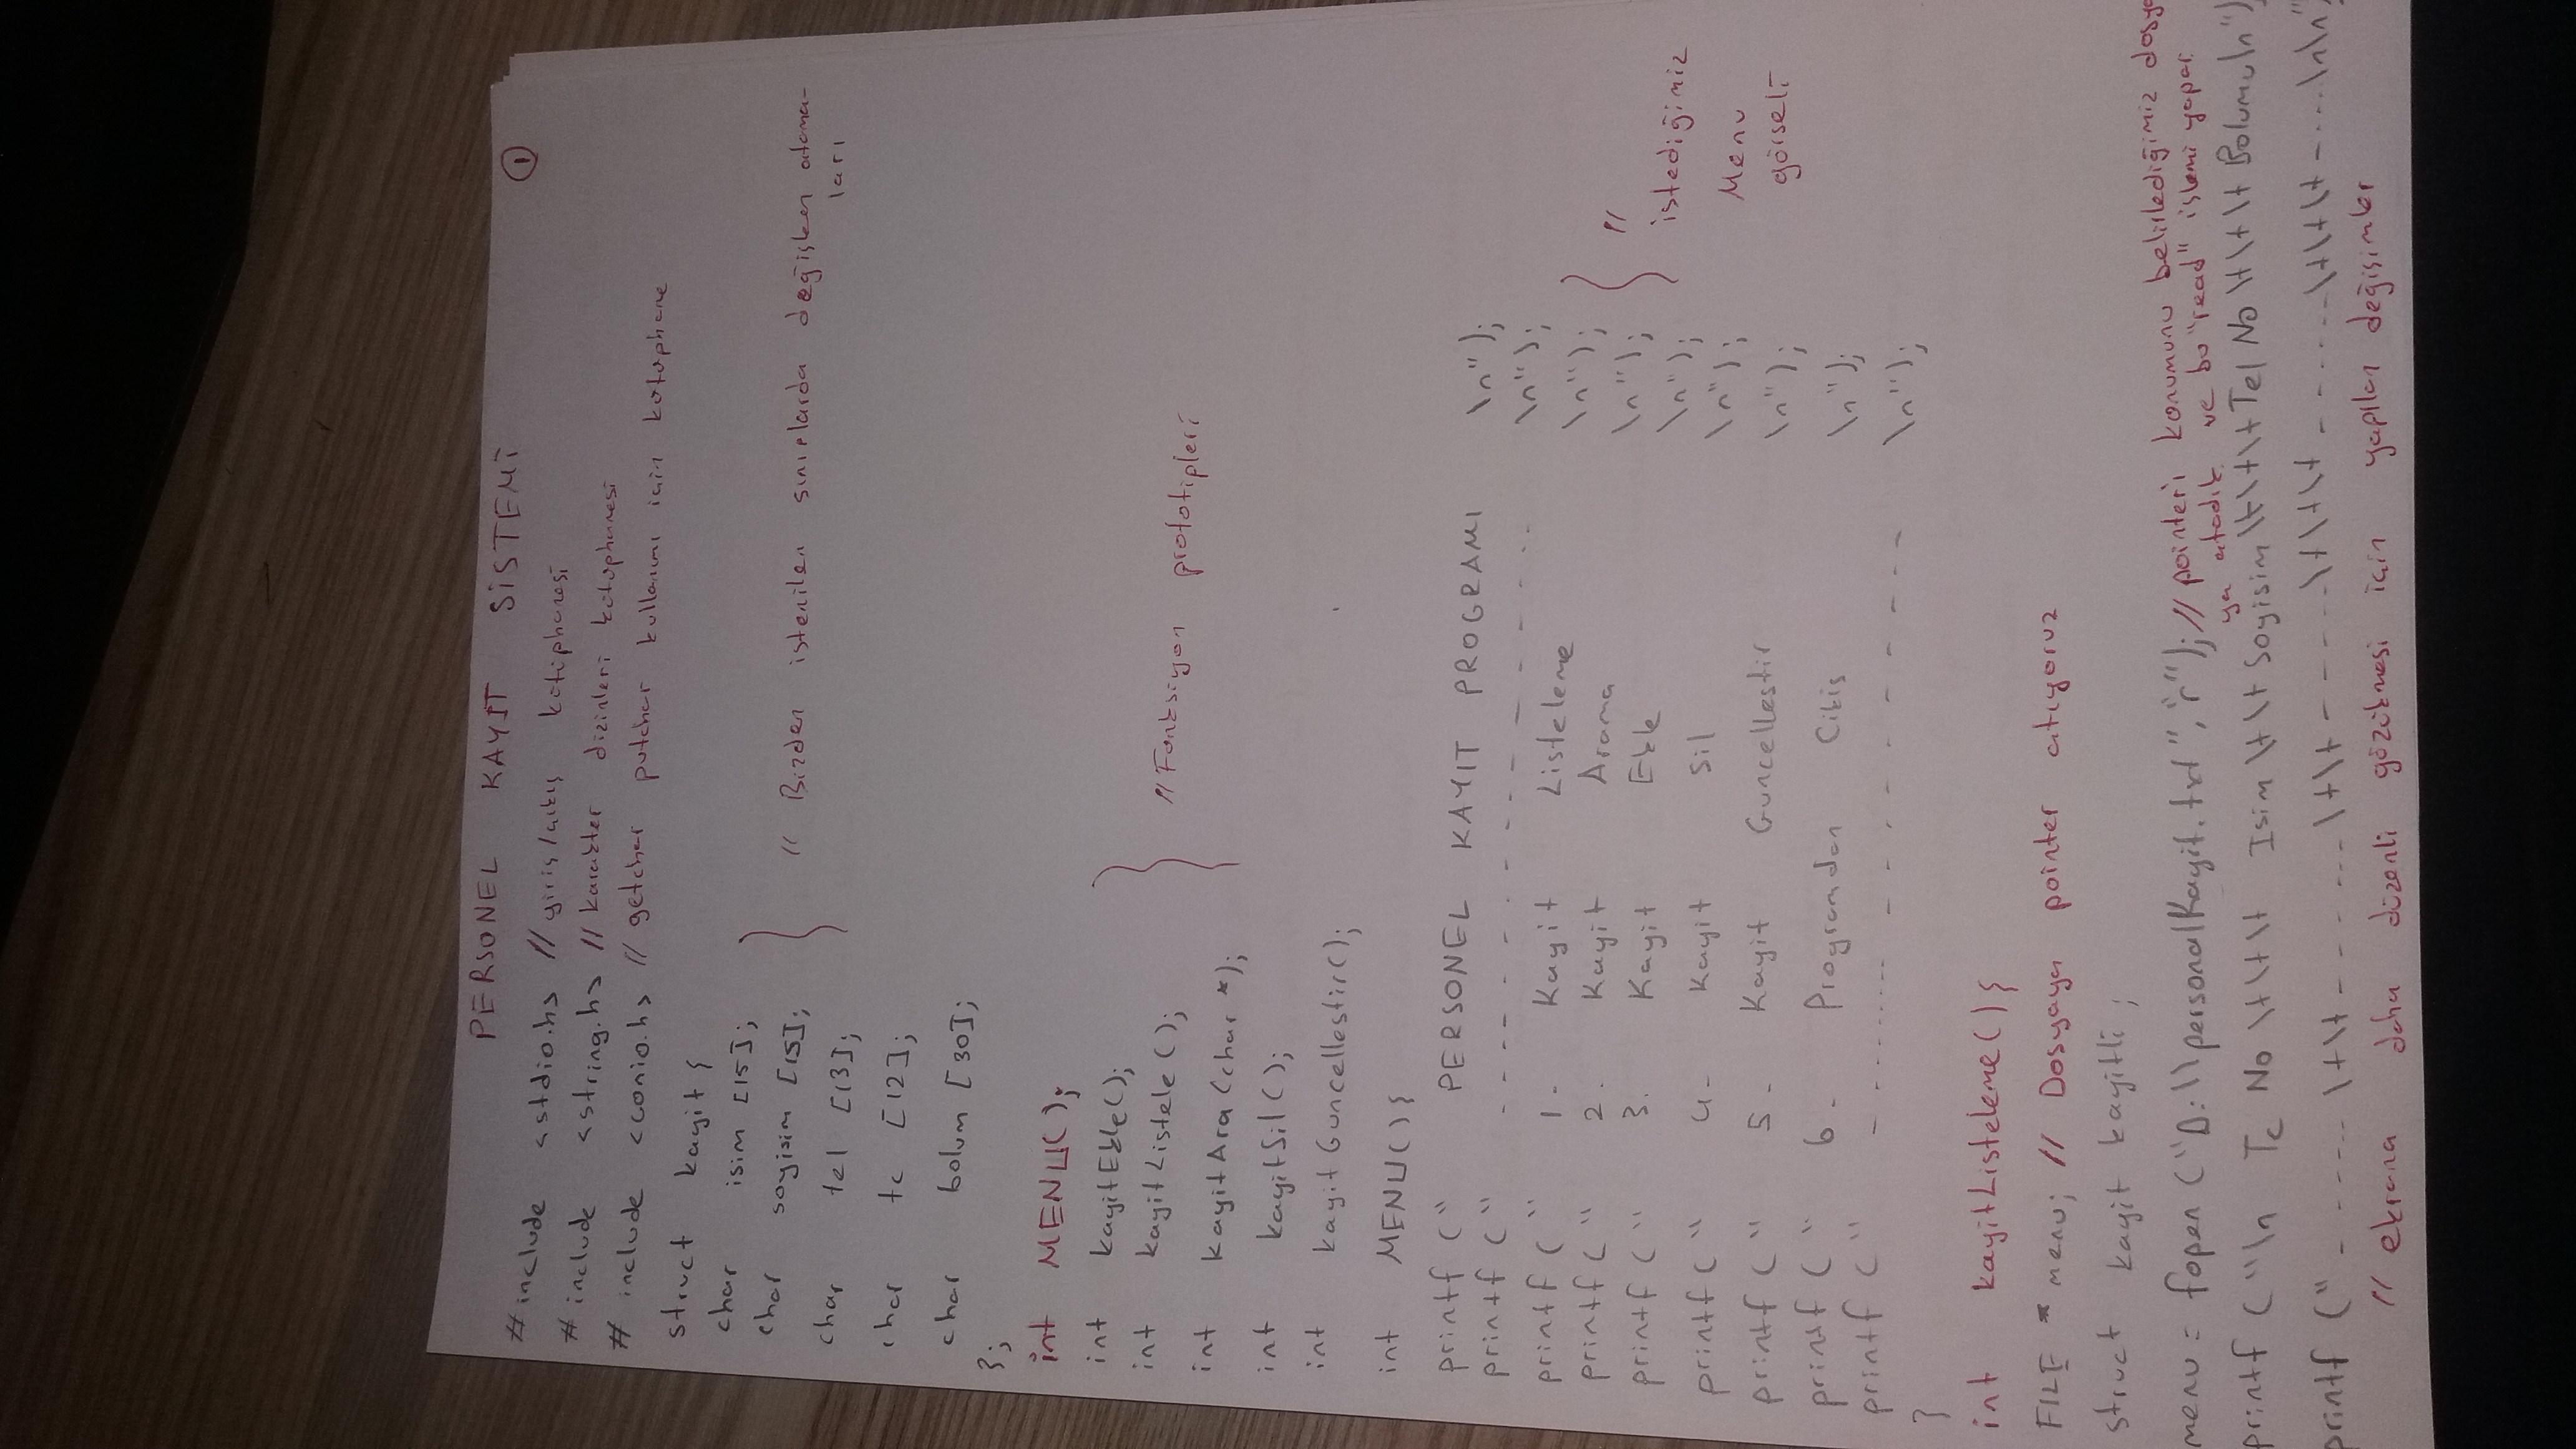 PERSONEL KAYIT SİSTEMİ
1
#include <stdio.h> // giriş/çıkış kütüphanesi
#include <string.h> // karakter dizinleri kütüphanesi
#include <conio.h> // getchar putchar kullanımı için kütüphane
struct kayit {
char isim [15];
char soyisim [15];
// Bizden istenilen sınıflarda değişken atama-
ları
char tel [13];
char tc [12];
char bolum [30];
};
int MENU();
int kayitEkle();
int kayitListele();
// Fonksiyon prototipleri
int kayitAra(char *);
int kayitSil();
int kayitGuncellestir();
int MENU(){
printf (" PERSONEL KAYIT PROGRAMI \n");
printf (" - - - - - - - - - - - - - - \n");
printf (" 1- Kayit Listeleme \n");
printf (" 2. Kayit Arama \n");
printf (" 3. Kayit Ekle \n");
printf (" 4- Kayit Sil \n");
printf (" 5- Kayit Guncellestir \n");
printf (" 6- Programdan Cikis \n");
printf (" - -------- - - - - - - - - - \n");
// istediğimiz
Menu
görseli
}
int kayitListeleme(){
FILE *menu; // Dosyaya pointer atıyoruz
struct kayit kayitli;
menu = fopen ("D:\\personalKayit.txt","r"); // pointeri konumunu belirlediğimiz dosya
ya atadık ve bu "read" işlemi yapar.
printf ("\n Tc No \t\t\t Isim \t\t Soyisim \t\t\t Tel No \t\t\t Bolumu\n")
printf (" - ----- \t\t - - - - --- \t\t - - - - - - \t\t\t - - ----- \t\t\t - ----\n\n"
// ekrana daha düzenli gözükmesi için yapılan değişimler